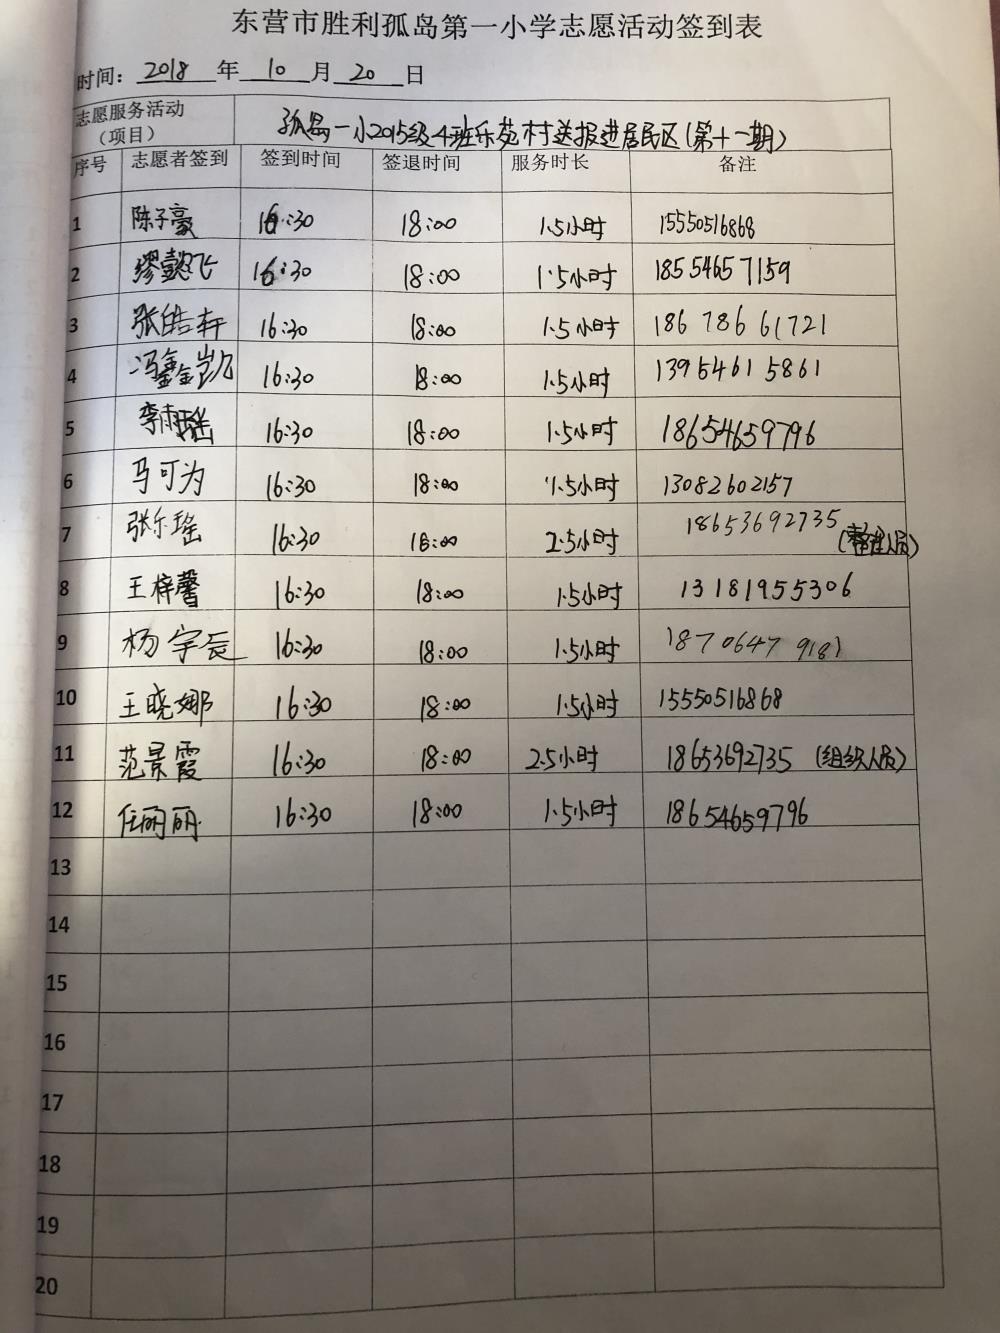 东营市胜利孤岛第一小学志愿活动签到表
时间: 2018 年 10 月 20 日
志愿服务活动（项目） 孤岛一小2015级4班乐苑村送报进居民区(第十一期)
序号 志愿者签到 签到时间 签退时间 服务时长 备注
1 陈子豪 16:30 18:00 1.5小时 15550516868
2 缪懿飞 16:30 18:00 1.5小时 18554657159
3 张皓轩 16:30 18:00 1.5小时 18678661721
4 冯鑫凯 16:30 18:00 1.5小时 13954615861
5 李雨瑶 16:30 18:00 1.5小时 18654659796
6 马可为 16:30 18:00 1.5小时 13082602157
7 张乐瑶 16:30 18:00 2.5小时 18653692735 (整理人员)
8 王梓馨 16:30 18:00 1.5小时 13181955306
9 杨宇辰 16:30 18:00 1.5小时 18706479181
10 王晓娜 16:30 18:00 1.5小时 15550516868
11 范景霞 16:30 18:00 2.5小时 18653692735 (组织人员)
12 任丽丽 16:30 18:00 1.5小时 18654659796
13
14
15
16
17
18
19
20